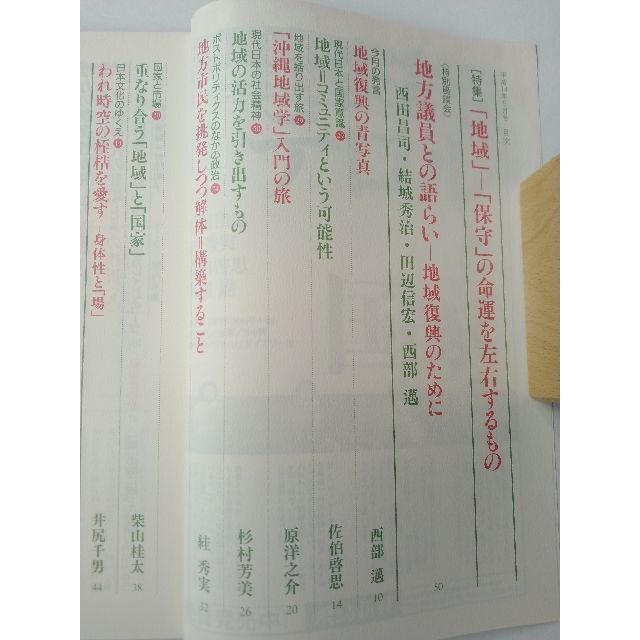 平成14年5月号 目次
[特集]「地域」―「保守」の命運を左右するもの
〈特別座談会〉
地方議員との語らい―地域復興のために
西田昌司・結城秀治・田辺信宏・西部 邁 50
今月の発言
地域復興の青写真 西部 邁 10
現代日本と国家意識
地域=コミュニティという可能性 佐伯啓思 14
地域を括り出す旅
「沖縄地域学」入門の旅 原洋之介 20
現代日本の社会精神
地域の活力を引き出すもの 杉村芳美 26
ポストポリティクスのなかの政治
地方市民を挑発しつつ解体=構築すること 絓 秀実 32
国家と市場
重なり合う「地域」と「国家」 柴山桂太 38
日本文化のゆくえ
われ時空の桎梏を愛す―身体性と「場」 井尻千男 44